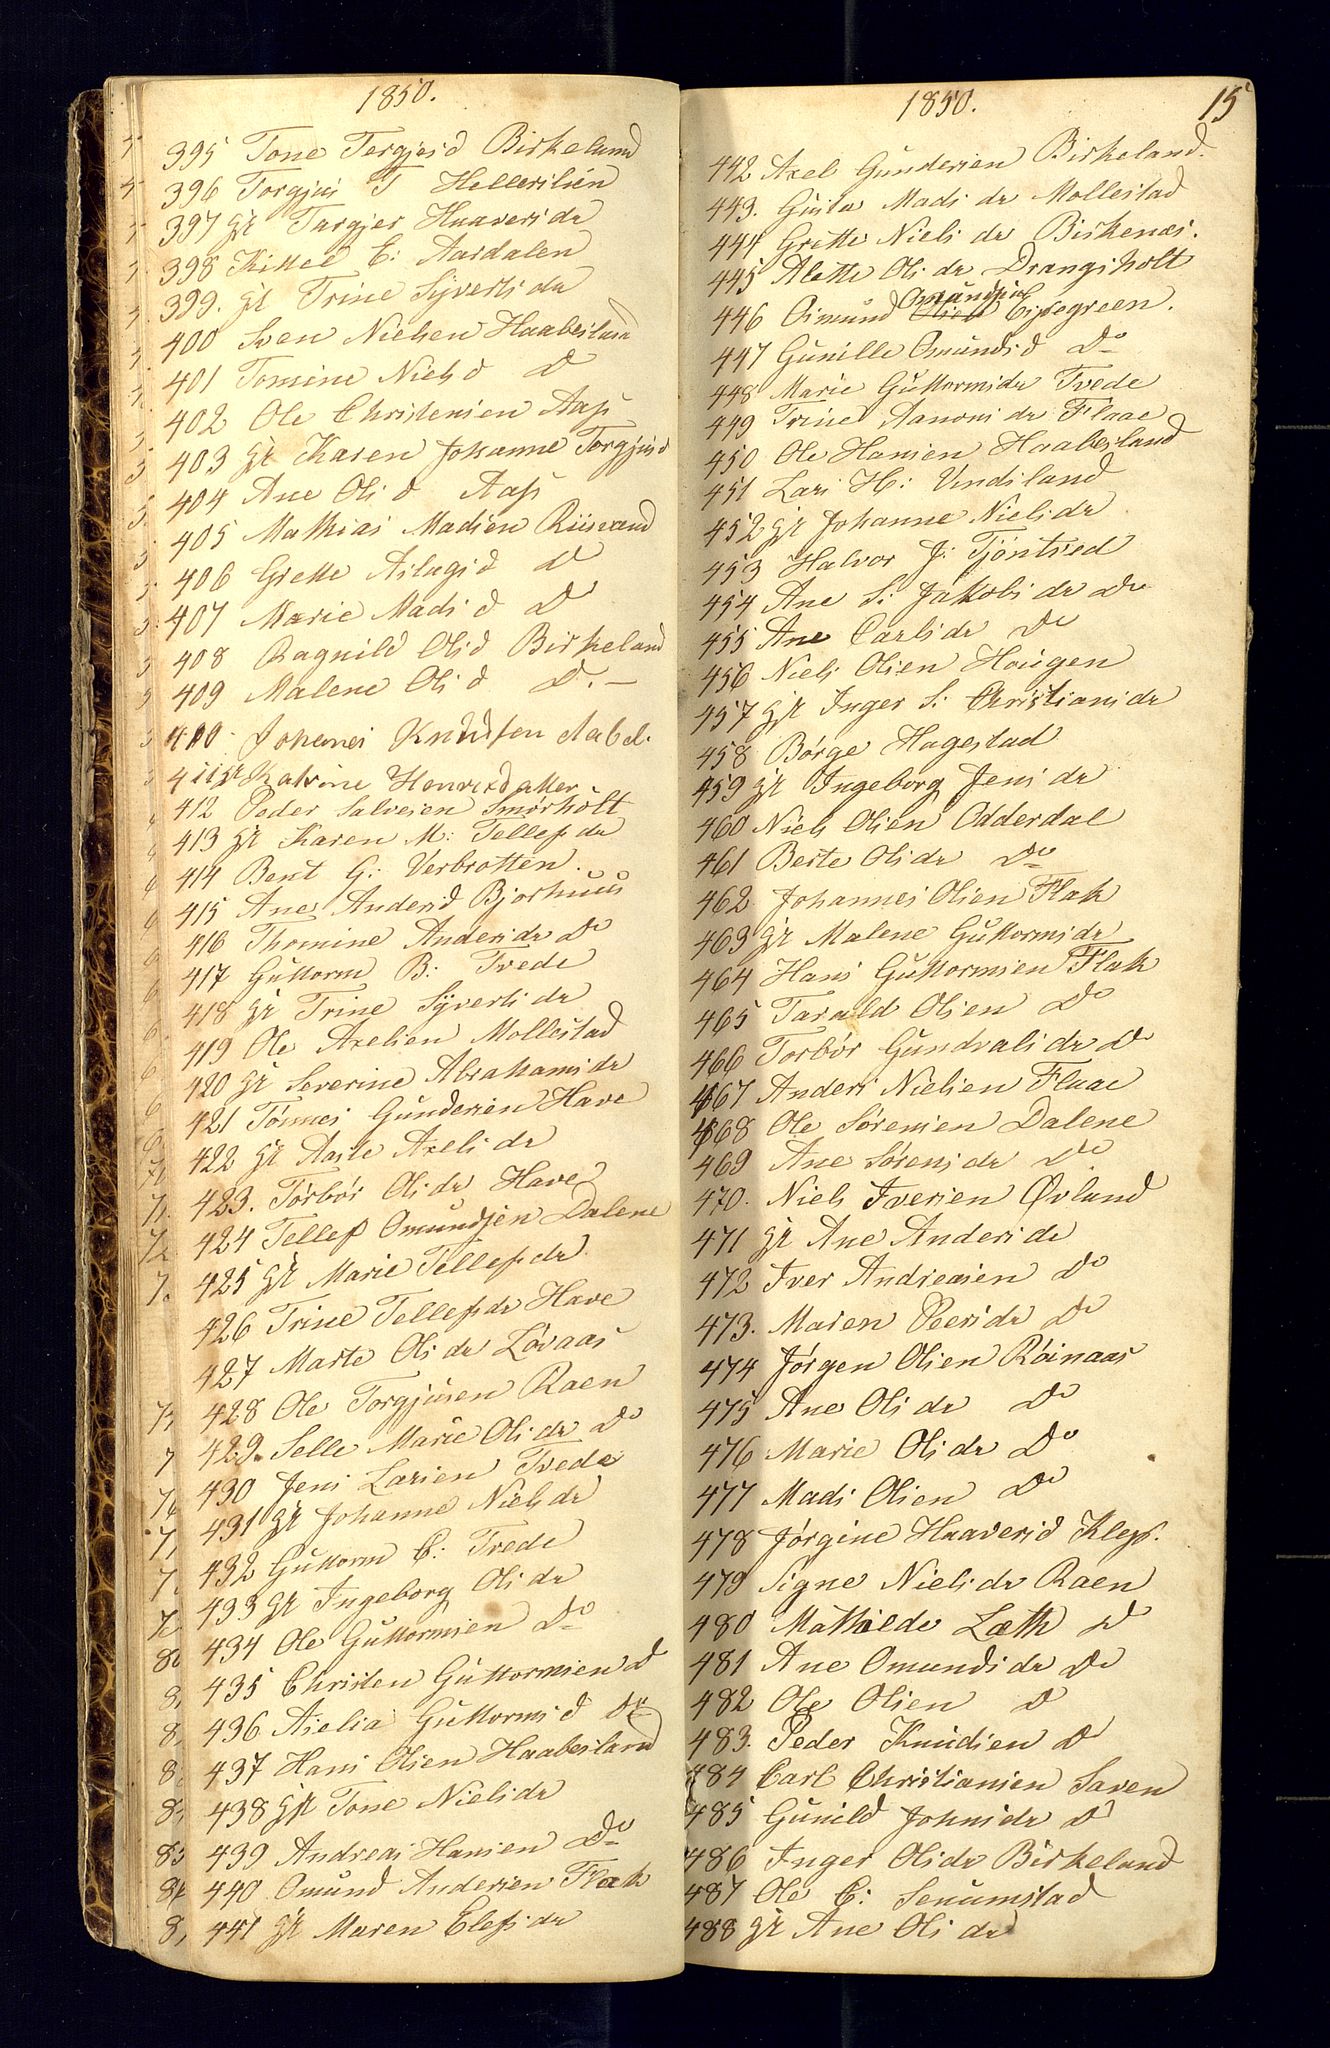 1850.
395 Tone Tergjesd Birkeland
396 Torgjus T Hellerslien
397 gr Targjer Haavers dr
398 Kittel C: Aardalen
399. gr Trine Syverts da
400 Sven Nielsen Haabesland
401 Tomine Niels d Do
402 Ole Christensen Aas
403 gr Karen Johanne Torgjusd
404 Ane Ols d Aas
405 Mathias Madsen Riisvand
406 Grette Aslagsd Do
407 Marie Mads d Do
408 Ragnild Olsd Birkeland
409 Malene Ols d Do. —
410 Johanes Knudsen Aabel.
411 gr Katrine Henriksdatter
412 Peder Salvesen Smørholt
413 gr Karen M: Tellefs da
414 Bent G: Verbrotten.
415 Ane Andersd Bjorhuus
416 Thomine Anders dr Do
417 Guttorm B: Tvede
418 gr Trine Syverts dr
419 Ole Axelsen Mollestad
420 gr Severine Abrahams dr
421 Tønnes Gundersen Have
422 gr Aaste Axels dr
423. Torbør Ols dr Have
424 Tellef Omundsen Dalene
425 gr Marie Tellefs dr
426 Trine Tellefs dr Have
427 Marte Ols dr Løvaas
428 Ole Torgjusen Raen
429. Selle Marie Ols dr Do
430 Jens Larsen Tvede
431 gr Johanne Niels dr
432 Guttorm C: Tvede
433 gr Ingeborg Ols dr
434 Ole Guttormsen Do
435 Christen Guttormsen D
436 Aselia Guttorms d Do
437 Hans Olsen Haabesland
438 gr Tone Niels dr
439 Andreas Hansen Do
440 Omund Andersen Flak
441 gr Maren Elefs dr
1850. 15
442 Axel Gundersen Birkeland.
443. Gusta Mads dr Mollestad
444 Grette Niels dr Birkenes.
445 Alette Ols dr Drangsholt
Omundsen
446 Osmund Eijdegreen.
447 Gunille Omundsd Do
448 Marie Guttorms dr Tvede
449 Trine Aanons dr Flaae
450 Ole Hansen Haabesland
451 Lars H: Vindsland
452 gr Johanne Niels dr
453 Halvor J: Tjøntved
454 Ane S: Jakobs dr Do
455 Ane Carls dr Do
456 Niels Olsen Hougen
457 gr Inger S: Christians dr
458 Børge Hagestad
459 gr Ingeborg Jens dr
460 Niels Olsen Odderdal
461 Berte Ols dr Do
462 Johannes Olsen Flak
463 gr Malene Guttorms dr
464 Hans Guttormsen Flak
465 Tarald Olsen Do
466 Torbør Gundvals dr Do
467 Anders Nielsen Flaae
468 Ole Sørensen Dalene
469 Ane Sørens dr Do
470. Niels Iversen Øvland
471 gr Ane Anders dr
472 Iver Andreasen Do
473. Maren Peers dr Do
474 Jørgen Olsen Røinaas
475 Ane Ols dr Do
476 Marie Ols dr Do
477 Mads Olsen Do
478 Jørgine Haaversd Kleps.
479 Signe Niels dr Raen
480 Mathilde Læth D
481 Ane Omunds dr Do
482 Ole Olsen D
483. Peder Knudsen Do
484 Carl Christiansen Saven
485 Gunild Johns dr D
486 Inger Ols dr Birkeland
487 Ole C: Senumstad
488 gr Ane Ols dr